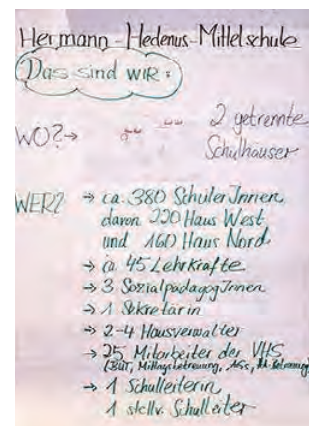 Hermann-Hedenus-Mittelschule
Das sind WIR:
WO?→ 2 getrennte
Schulhäuser
WER? → ca. 380 SchülerInnen,
davon 220 Haus West
und 160 Haus Nord
→ ca. 45 Lehrkräfte
→ 3 SozialpädagogInnen
→ 1 Sekretärin
→ 2-4 Hausverwalter
→ 25 Mitarbeiter der VHS
(BüT, Mittagsbetreuung, AGs,
→ 1 Schulleiterin,
1 stellv. Schulleiter